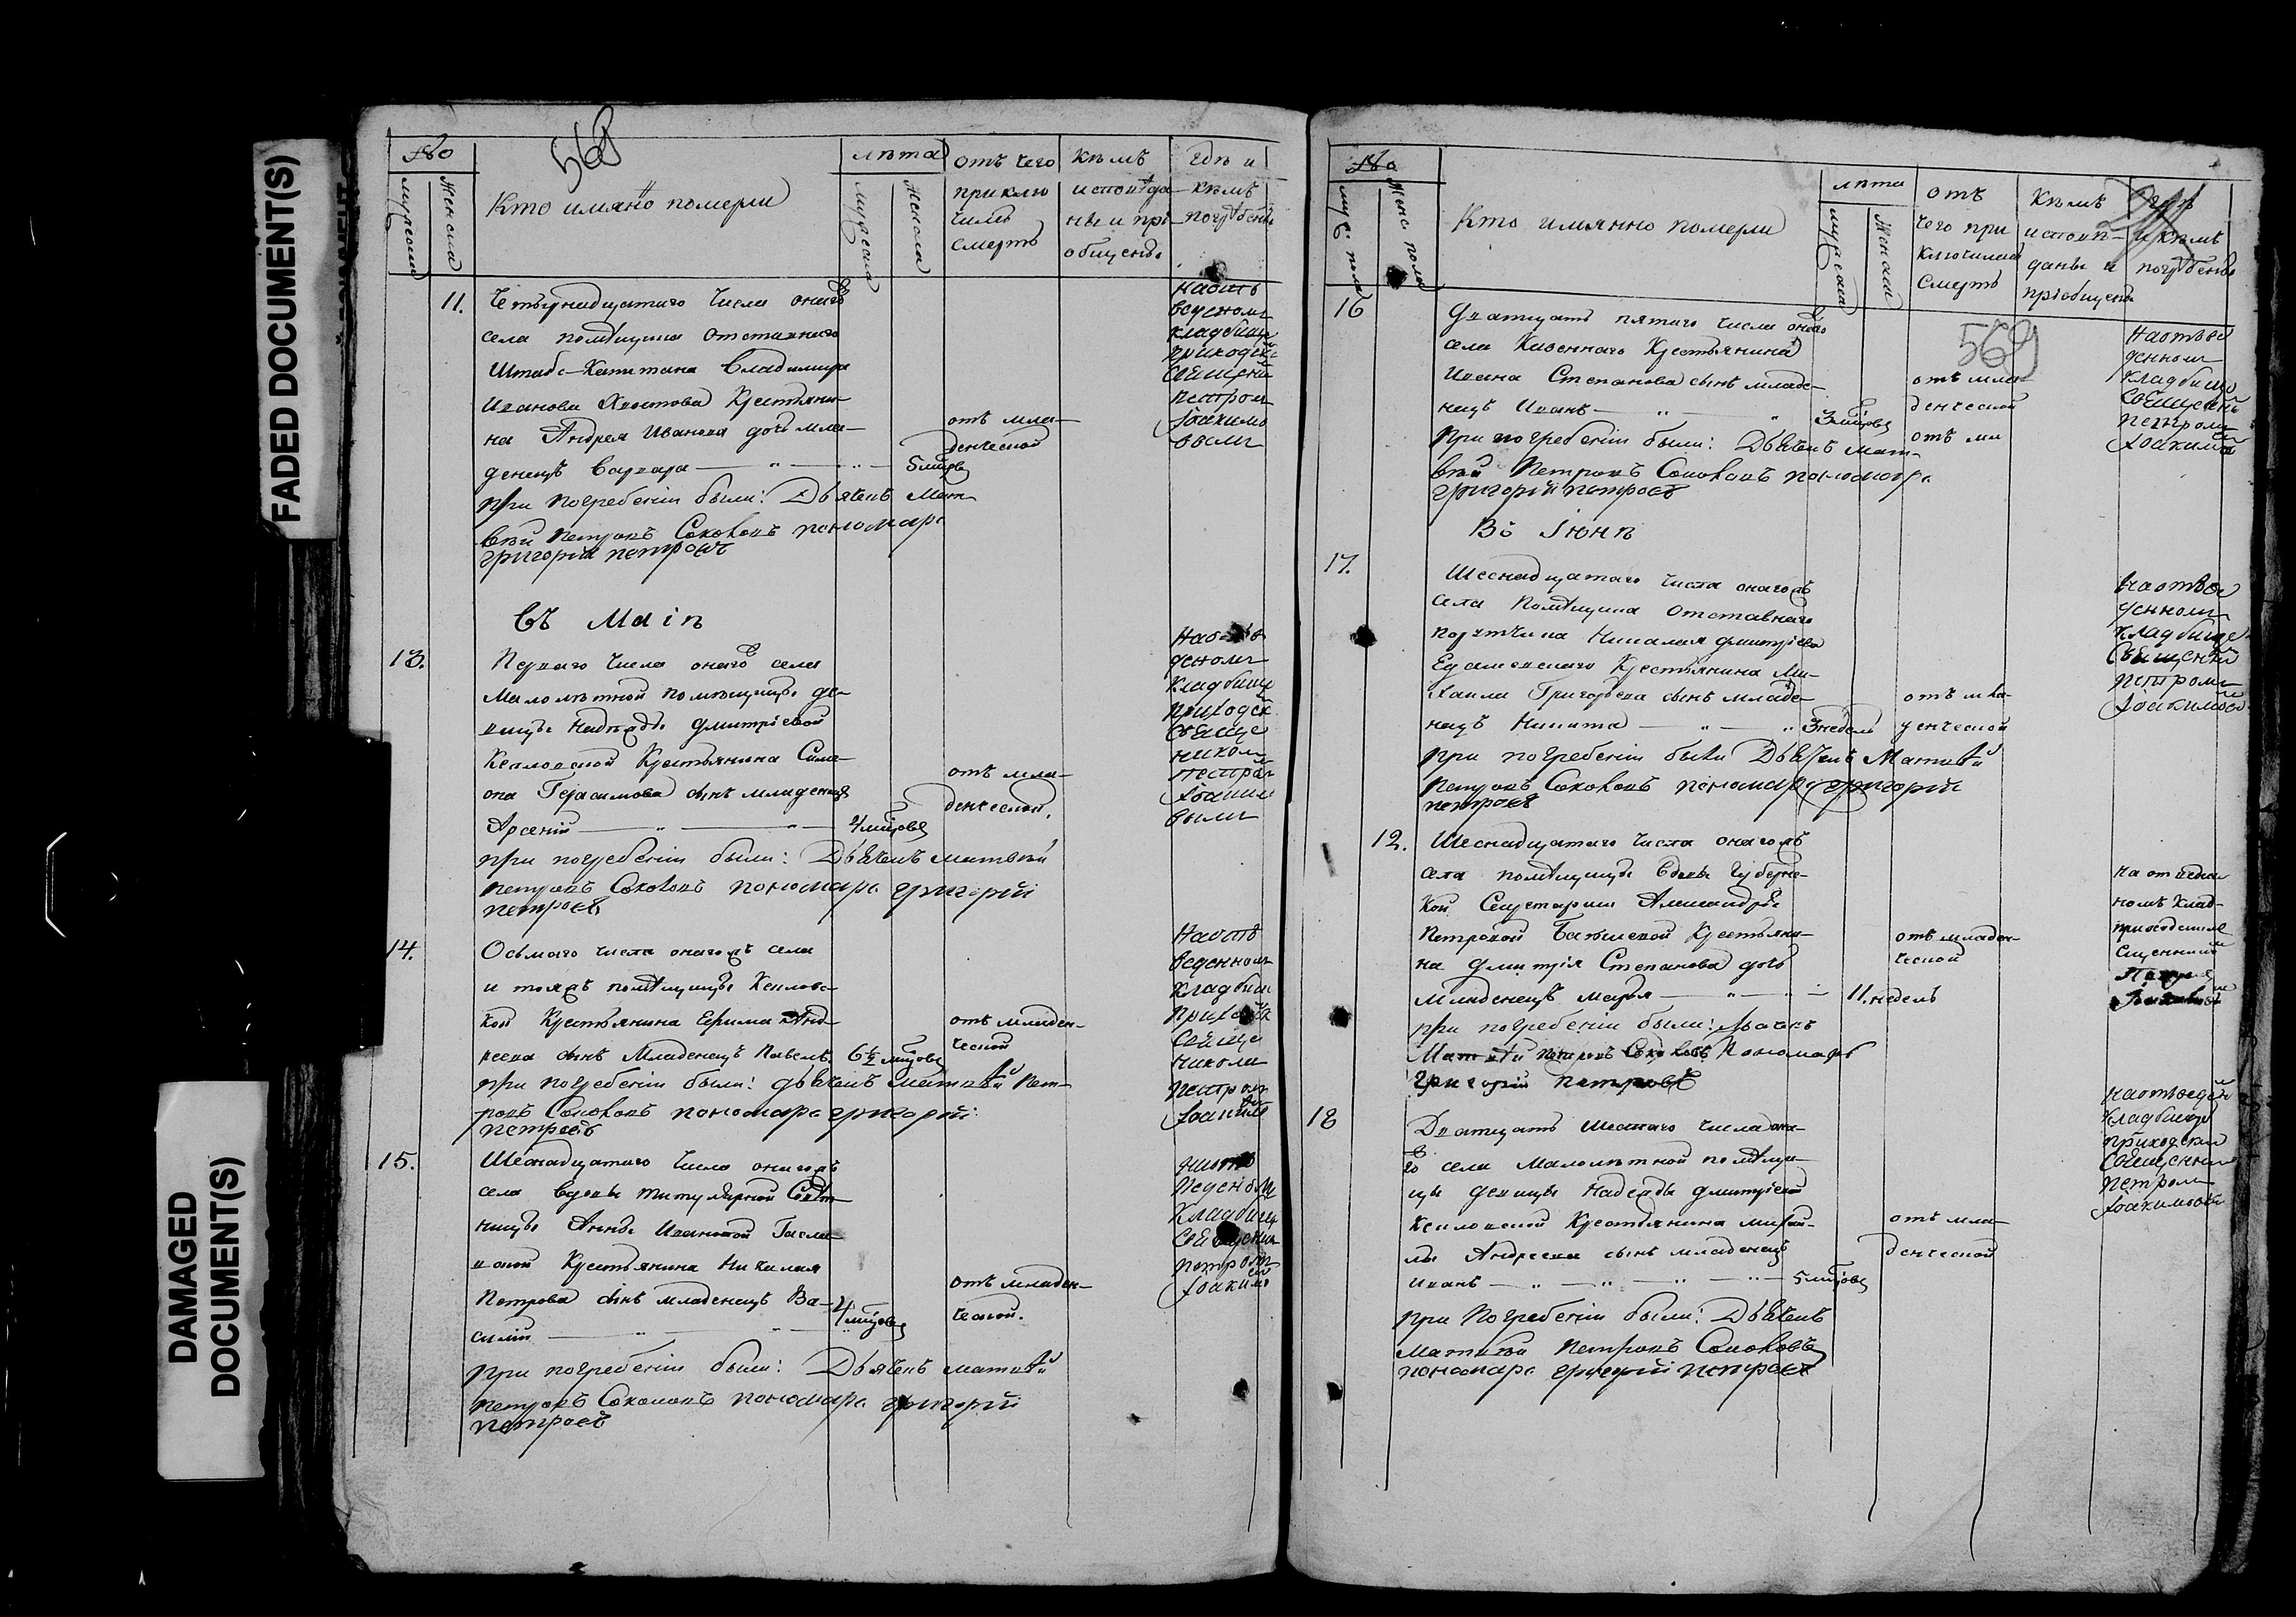 FADED DOCUMENT(S)
DAMAGED
DOCUMENT(S)
568
Кто имянно померли
лѣта
мужеска
женска
отъ чего
приклю
чилась
смерть
кѣмъ
исповѣда
ны и прі
общены
гдѣ и
кѣмъ
погребены
11.
Четырнадцатаго числа онаго
села помѣщика отставнаго
Штабс-Капитана Владимира
Иванова Хвостова Крестьяни-
на Андрея Иванова дочь мла-
денецъ Варвара
5 мцовъ
отъ мла-
денческой
на отъ
веденномъ
кладбище
приходск
Священ
Петромъ
Іоакимо
вымъ
при погребеніи были: Дьячекъ Мат
вѣй Петровъ Соколовъ пономарь
григорій петровъ
Въ Маіѣ
13.
Перваго числа онаго села
Малолѣтной помѣщицы дѣ-
вицы Надежды Дмитріевой
Крестьянина Симе-
она Герасимова сынъ младенецъ
Арсеній
4 мцовъ
отъ мла-
денческой.
кладбище
приходск
Свяще
никомъ
Петром
Іоаким
вымъ
при погребеніи были: Дьячекъ матвѣй
петровъ Соколовъ пономарь григорій
петровъ
14.
Осьмаго числа онагожъ села
и тояжъ помѣщицы
кой Крестьянина Ефима Анд-
реева сынъ Младенецъ Павелъ
6 ½ мцовъ
отъ младен-
ческой
На отъ
веденномъ
кладбищ
Свяще
никомъ
Петром
при погребеніи были: дьячекъ матвѣй Пет-
ровъ Соколовъ пономарь григорій
петровъ
15.
Шеснадцатаго числа онагожъ
села вдовы титулярной Совѣт
ницы Анны Ивановой
Крестьянина Николая
Петрова сынъ младенецъ Ва-
силій
4 мцовъ
отъ младен-
ческой.
кладбищ
петромъ
Іоакимо
при погребеніи были: Дьячекъ матвѣй
петровъ Соколовъ пономарь григорій
петровъ
муж: пола
женс пола
Кто имянно померли
лѣта
мужеска
женска
отъ
чего при
ключилась
смерть
Кѣмъ
исповѣ-
даны и
пріобщены
гдѣ
и кѣмъ
погребены
569
16
Дватцать пятаго числа онаго
села Казеннаго Крестьянина
Ивана Степанова сынъ младе-
нецъ Иванъ
3 мцовъ
отъ мла-
денческой
отъ мл
На отве
денномъ
кладбище
Священ
петромъ
Іоакимо
при погребеніи были: Дьячекъ мат-
вѣй Петровъ Соколовъ пономарь
григорій петровъ
Въ Іюнѣ
17.
Шеснадцатаго числа онагожъ
села Помѣщика Отставнаго
порутчика Николая Дмитріева
Крестьянина Ми-
хаила Григорьева сынъ младе-
нецъ Никита
3 недель
отъ мла-
денческой
На отве
денномъ
кладбище
Священ
петромъ
Іоакимов
при погребеніи были Дьячекъ Матвѣй
Петровъ Соколовъ пономарь григорій
петровъ
12.
Шеснадцатаго числа онагожъ
села помѣщицы вдовы губерн-
кой Секретарши Александры
Петровой Крестьяни-
на Дмитрія Степанова дочь
Младенецъ марья
11. недель
отъ младен-
ческой
на отведен
номъ клад-
при погребеніи были: дьячекъ
Матвѣй петровъ Соколовъ Пономарь
григорій петровъ
18
Дватцать шестаго числа она-
го села Малолѣтной помѣщи-
цы девицы Надежды Дмитріевой
Крестьянина
Андреева сынъ младенецъ
Иванъ
5 мцовъ
отъ мла-
денческой
кладбище
приходским
Священник
петромъ
Іоакимов
при погребеніи были: Дьячекъ
Матвѣй Петровъ Соколовъ
пономарь григорій петровъ